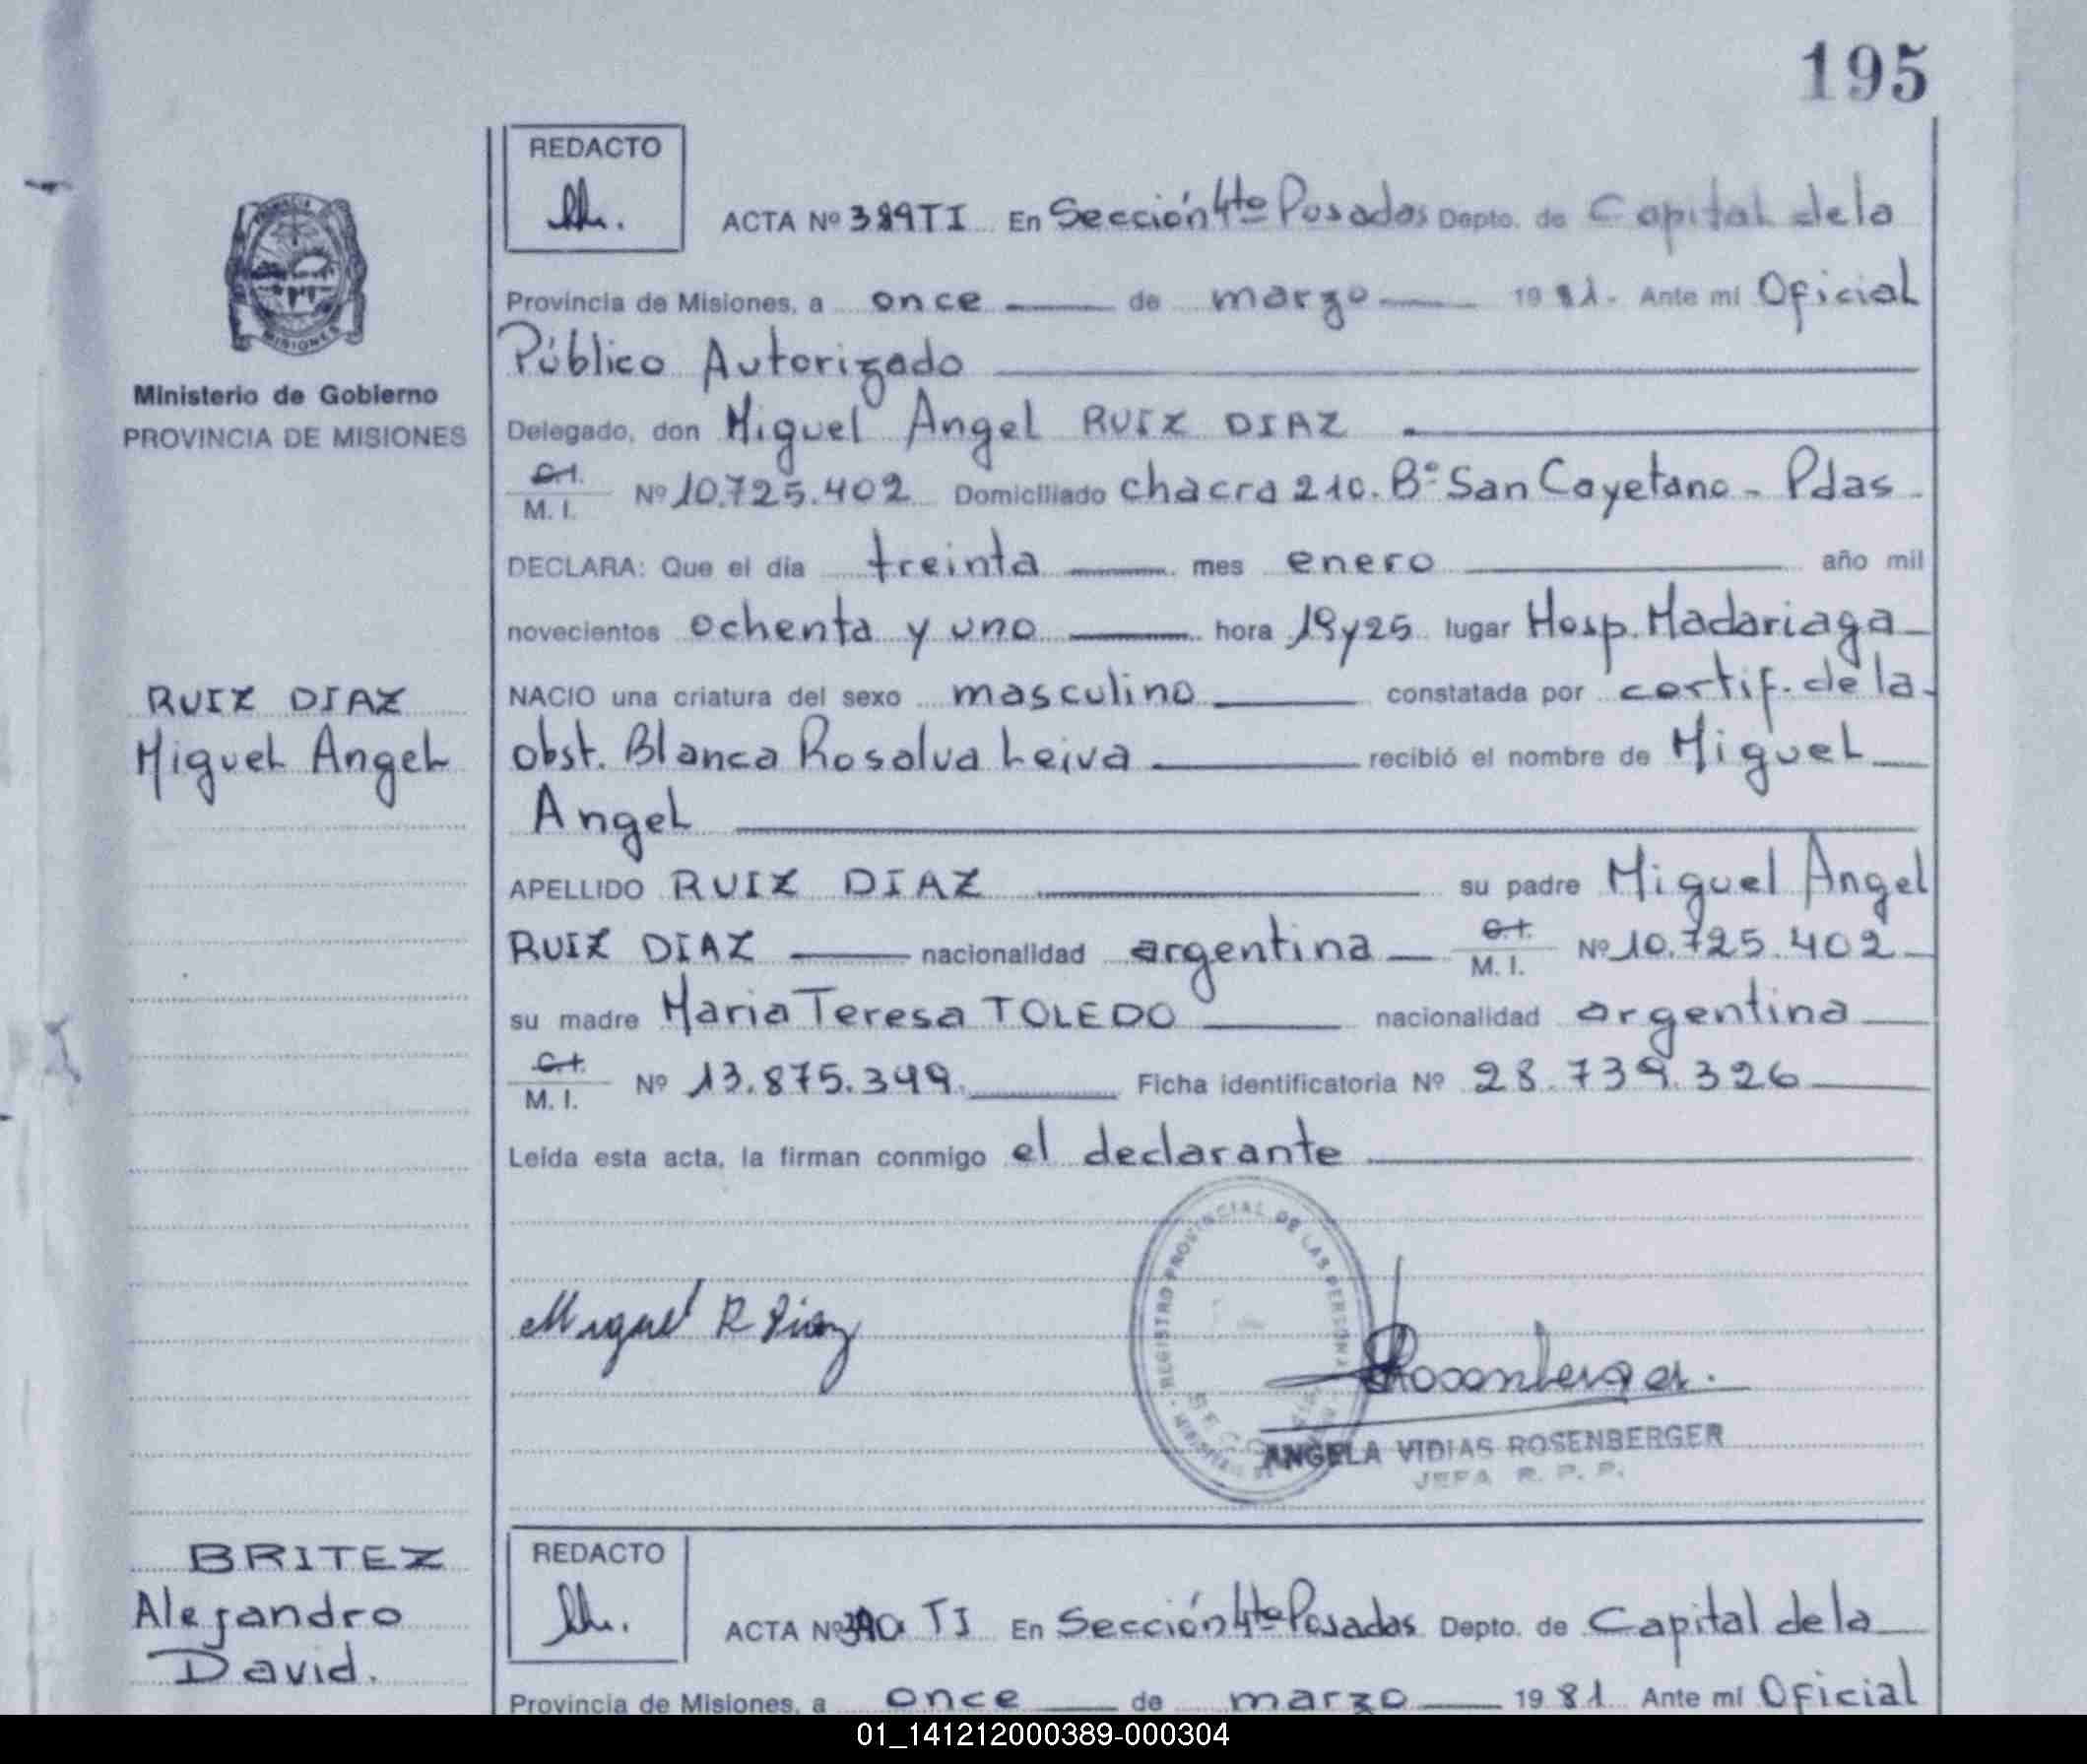 195
REDACTO
ACTA Nº 389 TI En Sección 4to Posadas Depto. de Capital de la
Provincia de Misiones, a once de marzo 1981. Ante mí Oficial
Público Autorizado
Ministerio de Gobierno
PROVINCIA DE MISIONES
Delegado, don Miguel Angel RUIZ DIAZ
C.I.
M. I. Nº 10.725.402 Domiciliado chacra 210. Bº San Cayetano - Pdas
DECLARA: Que el día treinta mes enero año mil
novecientos ochenta y uno hora 19y25 lugar Hosp. Madariaga
RUIZ DIAZ
Miguel Angel
NACIO una criatura del sexo masculino constatada por certif. de la
obst. Blanca Rosalva Leiva recibió el nombre de Miguel
Angel
APELLIDO RUIZ DIAZ su padre Miguel Angel
RUIZ DIAZ nacionalidad argentina C.I. M. I. Nº 10.725.402
su madre Maria Teresa TOLEDO nacionalidad argentina
C.I.
M. I. Nº 13.875.349 Ficha identificatoria Nº 28.739.326
Leída esta acta, la firman conmigo el declarante
REGISTRO PROVINCIAL DE LAS PERSONAS
Miguel R Diaz
Rosenberger.
ANGELA VIDIAS ROSENBERGER
JEFA R. P. P.
BRITEZ
Alejandro
David.
REDACTO
ACTA Nº 390 TI En Sección 4to Posadas Depto. de Capital de la
Provincia de Misiones, a once de marzo 1981 Ante mí Oficial
01_141212000389-000304